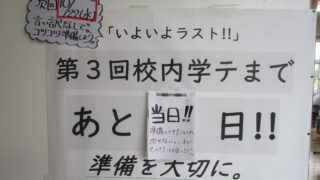 次回10/
22(火)
言い訳なしで
コツコツ準備しよう。
「いよいよラスト!!」
第3回校内学テまで
あと
当日!!
日!!
準備を大切に。